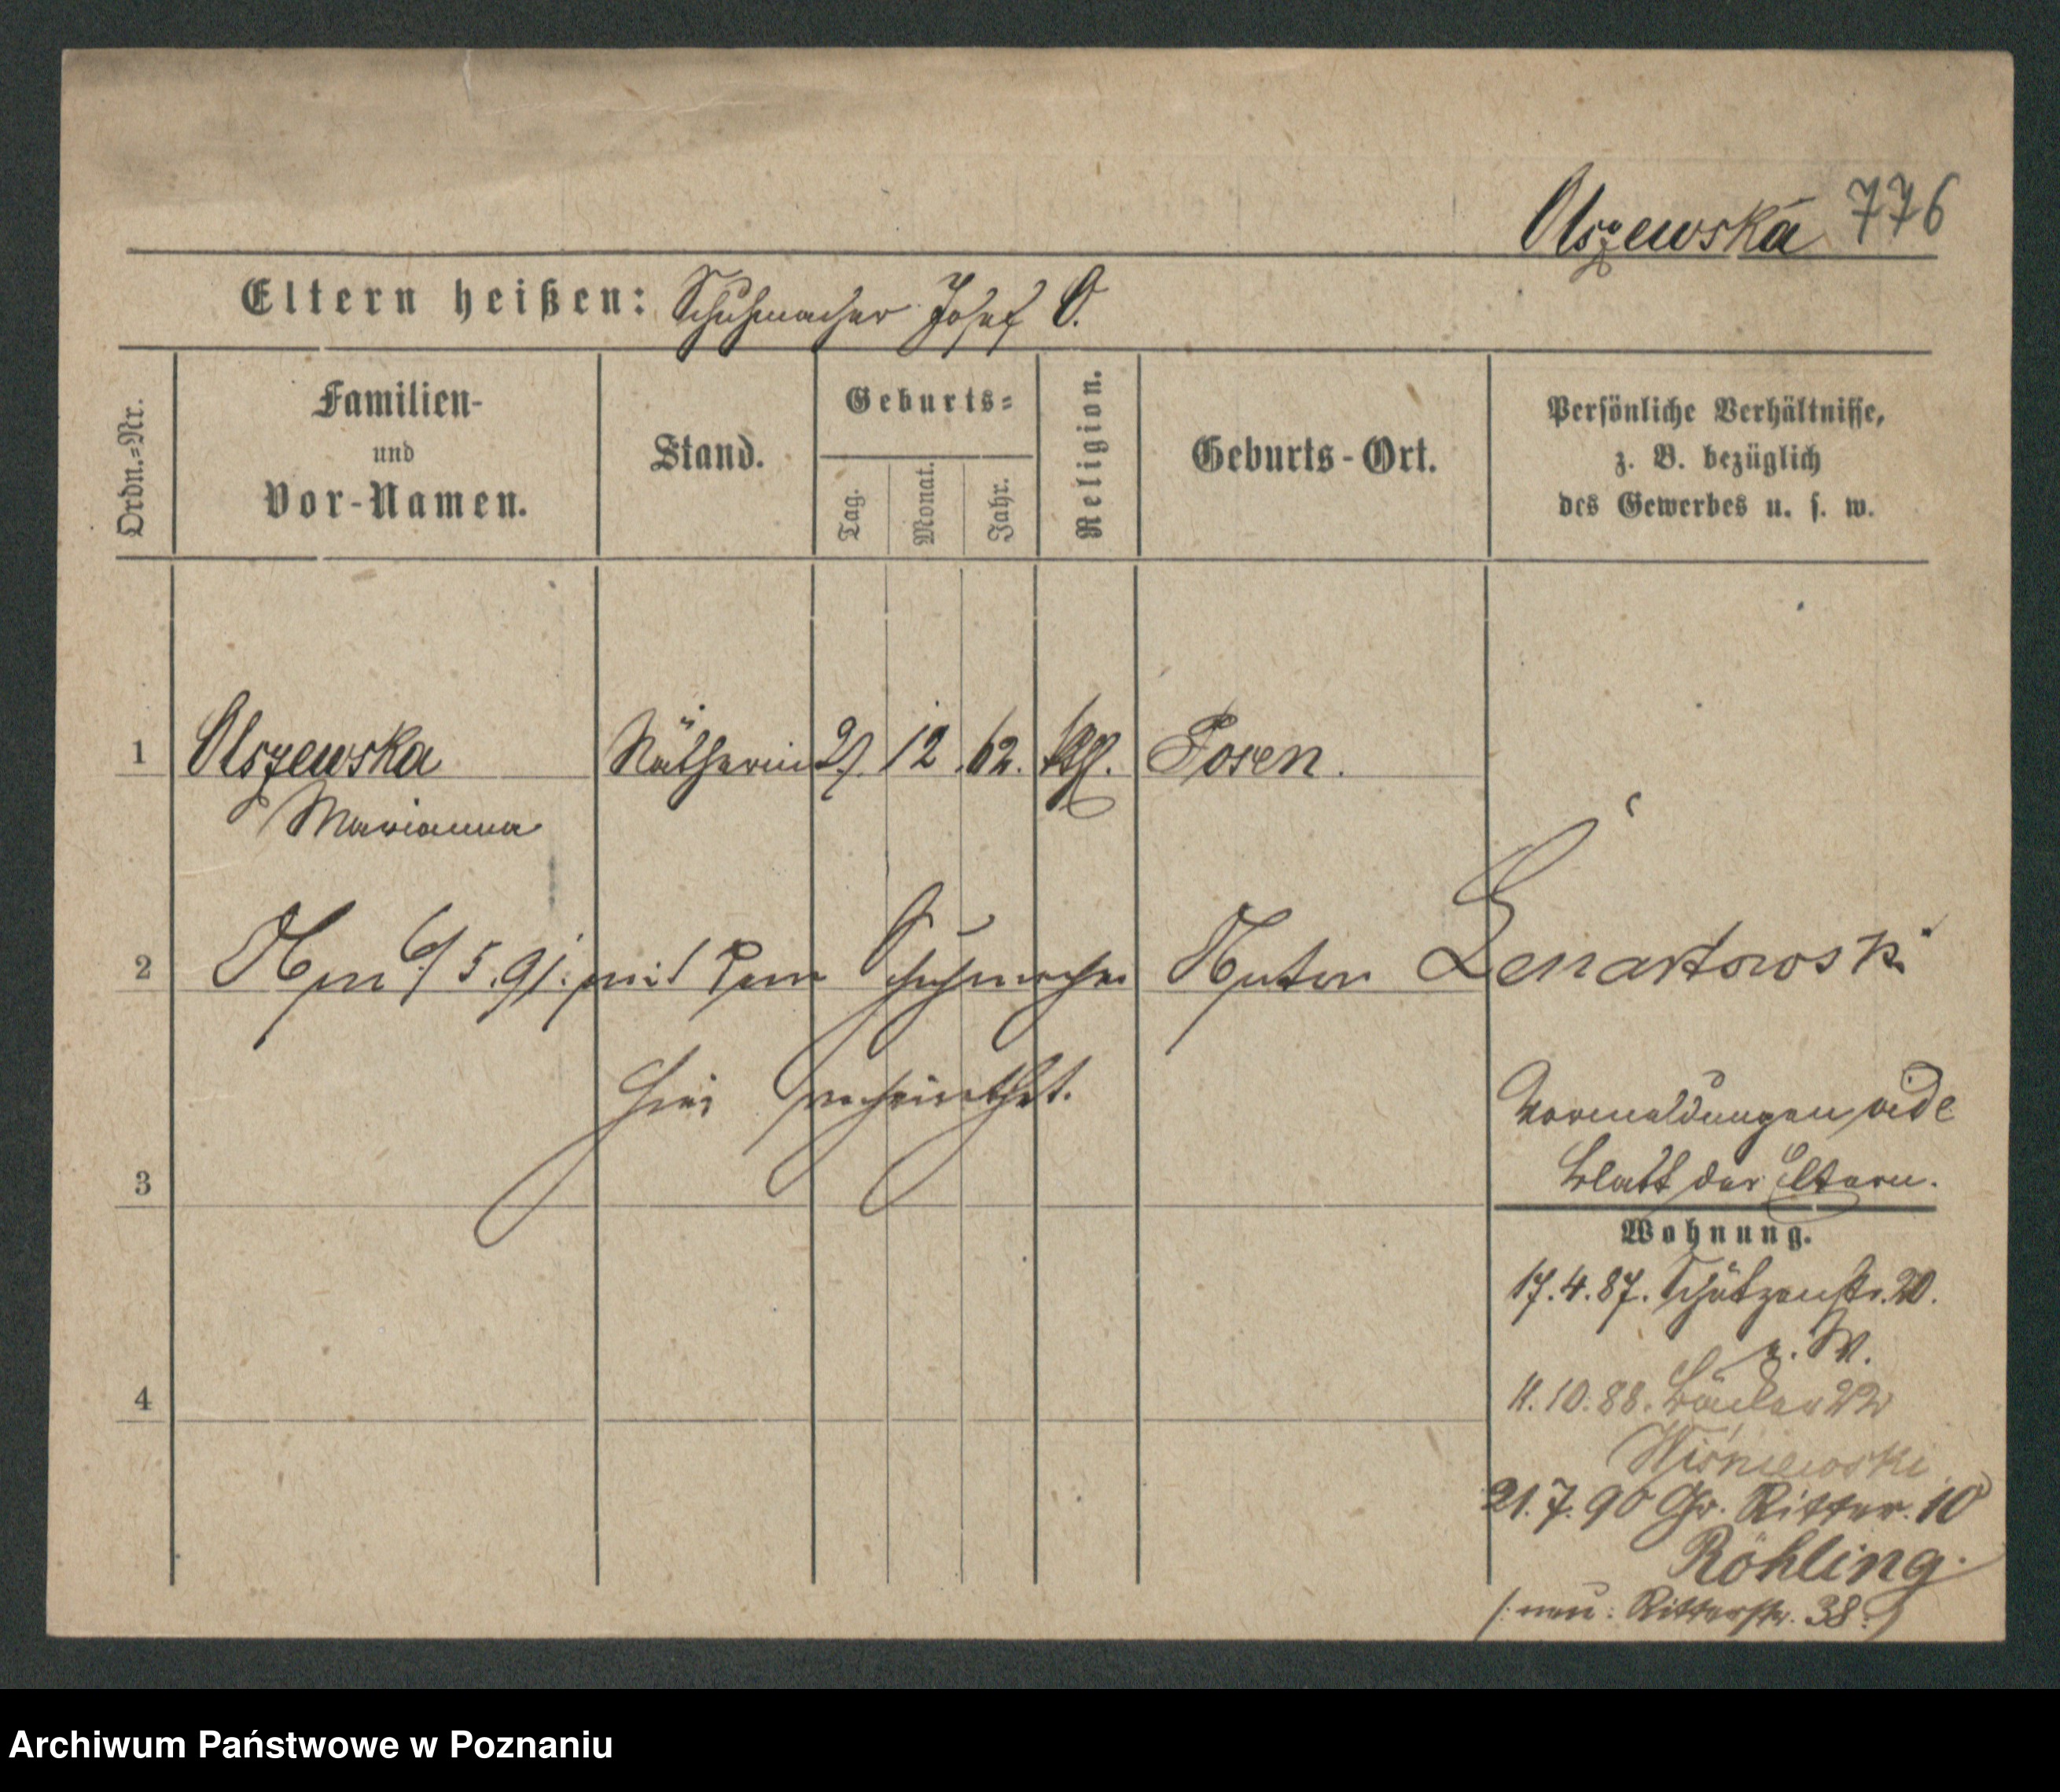 Olszewska 776
Eltern heißen: Schuhmacher Josef O.
Ordn.=Nr.
Familien-
und
Vor-Namen.
Stand.
Geburts=
Tag.
Monat.
Jahr.
Religion.
Geburts-Ort.
Persönliche Verhältnisse,
z. B. bezüglich
des Gewerbes u. s. w.
1 Olszewska Nätherin 12 62. kth. Posen.
Marianna
2 Am 6/5. 91. mit dem Schuhmacher Lenartowski
hier verheirathet.
Vormeldungen vide
Blatt der Eltern.
3
Wohnung.
17.4.87. Schützenstr. 20.
4
11.10.88. Bäcker 22
Wiśniewski
21.7.90 Gr. Ritter. 10
Röhling.
/: neu: Ritterstr. 38 :/
Archiwum Państwowe w Poznaniu